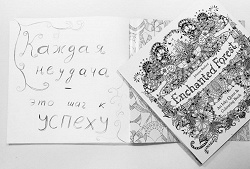 Каждая
неудача
–
это шаг к
успеху
Enchanted Forest